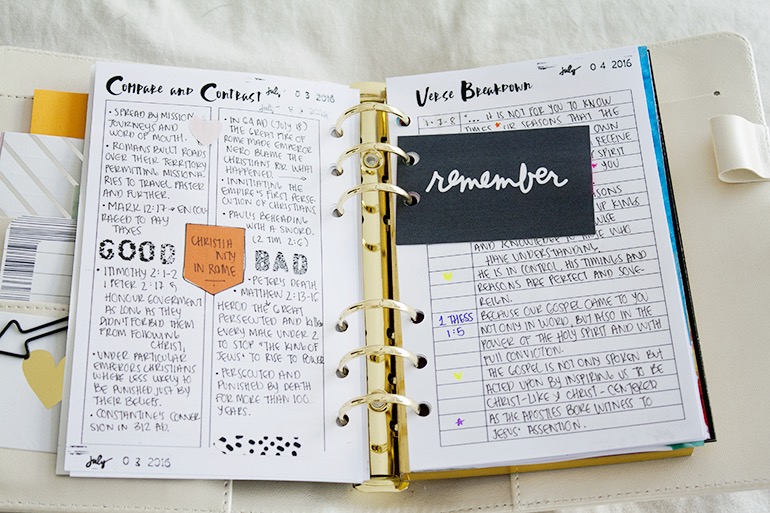 COMPARE AND CONTRAST
July 03 2016
• SPREAD BY MISSION
JOURNEYS AND
WORD OF MOUTH.
• ROMANS BUILT ROADS
OVER THEIR TERRITORY
PERMITTING MISSIONA-
RIES TO TRAVEL FASTER
AND FURTHER.
• MARK 12:17 → ENCOU
RAGED TO PAY
TAXES
GOOD
• 1 TIMOTHY 2:1-2
1 PETER 2:17
HONOUR GOVERMENT
AS LONG AS THEY
DIDN'T FORBID THEM
FROM FOLLOWING
CHRIST.
• UNDER PARTICULAR
EMPERORS CHRISTIANS
WHERE LESS LIKELY TO
BE PUNISHED JUST BY
THEIR BELIEFS.
• CONSTANTINE'S CONVER
SION IN 312 AD.
CHRISTIA
NITY
IN ROME
• IN 64 AD (JULY 18)
THE GREAT FIRE OF
ROME MADE EMPEROR
NERO BLAME THE
CHRISTIANS FOR WHAT
HAPPENED.
• INNITIATING THE
EMPIRE'S FIRST PERSE-
CUTION OF CHRISTIANS
• PAUL'S BEHEADING
WITH A SWORD.
(2 TIM 2:6)
BAD
• PETER'S DEATH
• MATTHEW 2:13-16
HEROD THE GREAT
PERSECUTED AND KILLED
EVERY MALE UNDER 2
TO STOP "THE KING OF
JEWS" TO RISE TO POWER
• PERSECUTED AND
PUNISHED BY DEATH
FOR MORE THAN 100
YEARS.
July 03 2016
VERSE BREAKDOWN
July 04 2016
1:7-8
"... IT IS NOT FOR YOU TO KNOW
TIMES OR SEASONS THAT THE
OWN
RECEIVE
SPIRIT
YOU
remember
SEASONS
UP KINGS
AND KNOWLEDGE TO THOSE WHO
HAVE UNDERSTANDING.
HE IS IN CONTROL, HIS TIMINGS AND
REASONS ARE PERFECT AND SOVE-
REIGN.
1 THESS
1:5
BECAUSE OUR GOSPEL CAME TO YOU
NOT ONLY IN WORD, BUT ALSO IN THE
POWER OF THE HOLY SPIRIT AND WITH
FULL CONVICTION.
THE GOSPEL IS NOT ONLY SPOKEN BUT
ACTED UPON BY INSPIRING US TO BE
CHRIST-LIKE & CHRIST-CENTERED
AS THE APOSTLES BORE WITNESS TO
JESUS' ASSENTION.